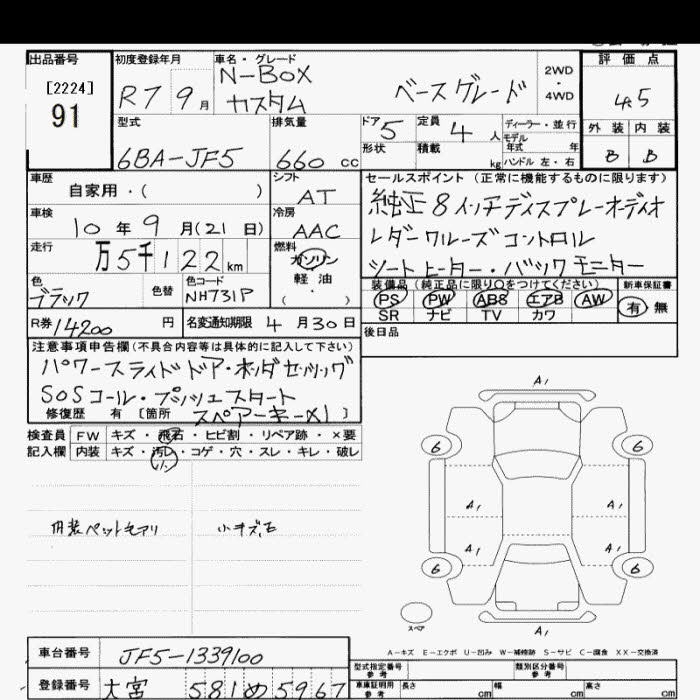 出品番号 初度登録年月 車名・グレード 評価点
[2224] R7 9月 N-BOX ベースグレード 2WD・4WD 4.5
91 カスタム
型式 排気量 ドア 5 定員 4人 ディーラー・並行 外装 内装
6BA-JF5 660cc 形状 積載 kg モデル年式 年 B B
ハンドル 左・右
車歴 シフト セールスポイント(正常に機能するものに限ります)
自家用・( ) AT 純正8インチディスプレーオーディオ
車検 冷房
10年9月(21日) AAC レーダークルーズコントロール
走行 燃料
万5千122km ガソリン シートヒーター・バックモニター
軽油
色 色替 色コード ( ・ ) 装備品(純正品に限り○をつけてください) 新車保証書
ブラック NH731P PS PW ABS エアB AW 有 無
SR ナビ TV カワ
R券 14200円 名変通知期限 4月30日 後日品
注意事項申告欄(不具合内容等は具体的に記入して下さい)
パワースライドドア・ホンダセンシング
SOSコール・プッシュスタート
修復歴 有 [箇所 スペアーキー×1 ]
検査員 FW キズ・飛石・ヒビ割・リペア跡・×要
記入欄 内装 キズ・汚レ・コゲ・穴・スレ・キレ・破レ
小
内装ペットモアリ 小キズ、石
A1
6 6
A1 A1
A1 A1
6 6
スペア A1
A-キズ E-エクボ U-凹み W-補修跡 S-サビ C-腐食 XX-交換済
車台番号 JF5-1339100 型式指定番号 参考 類別区分番号 参考
登録番号 大宮 581 め 5967 車庫証明用 参考 長さ cm 幅 cm 高さ cm